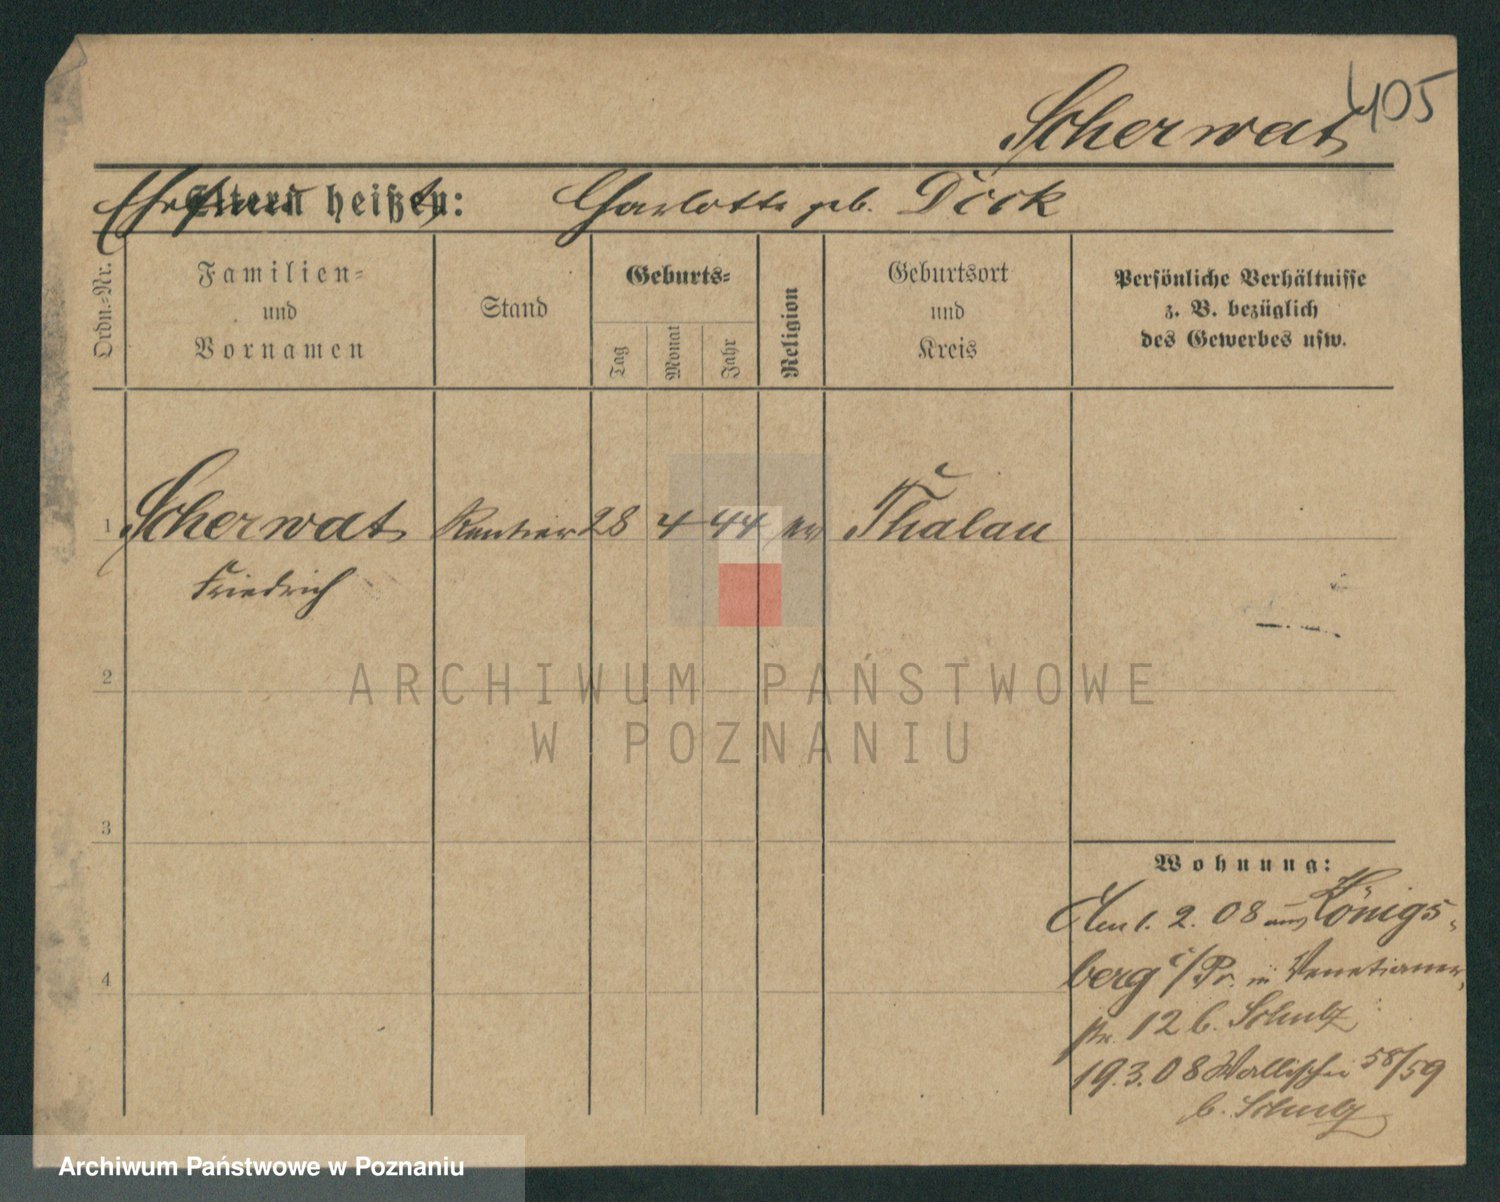 405
Scherwat
Ehefrau heißt: Charlotte geb. Dick
Eltern heißen:
Ordn.-Nr.
Familien-
und
Vornamen
Stand
Geburts-
Tag
Monat
Jahr
Religion
Geburtsort
und
Kreis
Persönliche Verhältnisse
z. B. bezüglich
des Gewerbes usw.
1 Scherwat Rentier 28 4 44 ev Thalau
Friedrich
2
3
4
Wohnung:
Am 1. 2. 08 aus Königs-
berg i/Pr. in Venetianer-
str. 12 b. Schulz
19.3.08 Wallischei 58/59
b. Schulz
ARCHIWUM PAŃSTWOWE
W POZNANIU
Archiwum Państwowe w Poznaniu